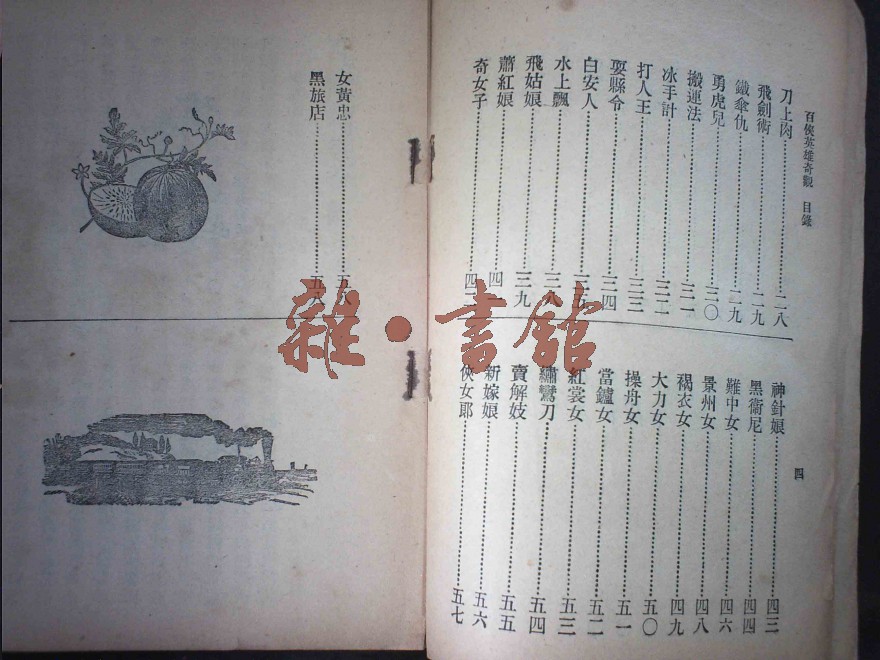 百俠英雄奇觀 目錄
刀上肉⋯⋯二八
飛劍術⋯⋯二九
鐵傘仇⋯⋯二九
勇虎兒⋯⋯三〇
搬運法⋯⋯三一
冰手計⋯⋯三二
打人王⋯⋯三三
耍縣令⋯⋯三四
白安人⋯⋯三五
水上飄⋯⋯三八
飛姑娘⋯⋯三九
蕭紅娘⋯⋯四
奇女子⋯⋯四二
神針娘⋯⋯四三
黑衛尼⋯⋯四四
難中女⋯⋯四六
景州女⋯⋯四八
褐衣女⋯⋯四九
大力女⋯⋯五〇
操舟女⋯⋯五一
當鑪女⋯⋯五二
紅裳女⋯⋯五三
繡鸞刀⋯⋯五四
賣解妓⋯⋯五五
新嫁娘⋯⋯五六
俠女郎⋯⋯五七
四
女黃忠⋯⋯五
黑旅店⋯⋯五八
雜·書館